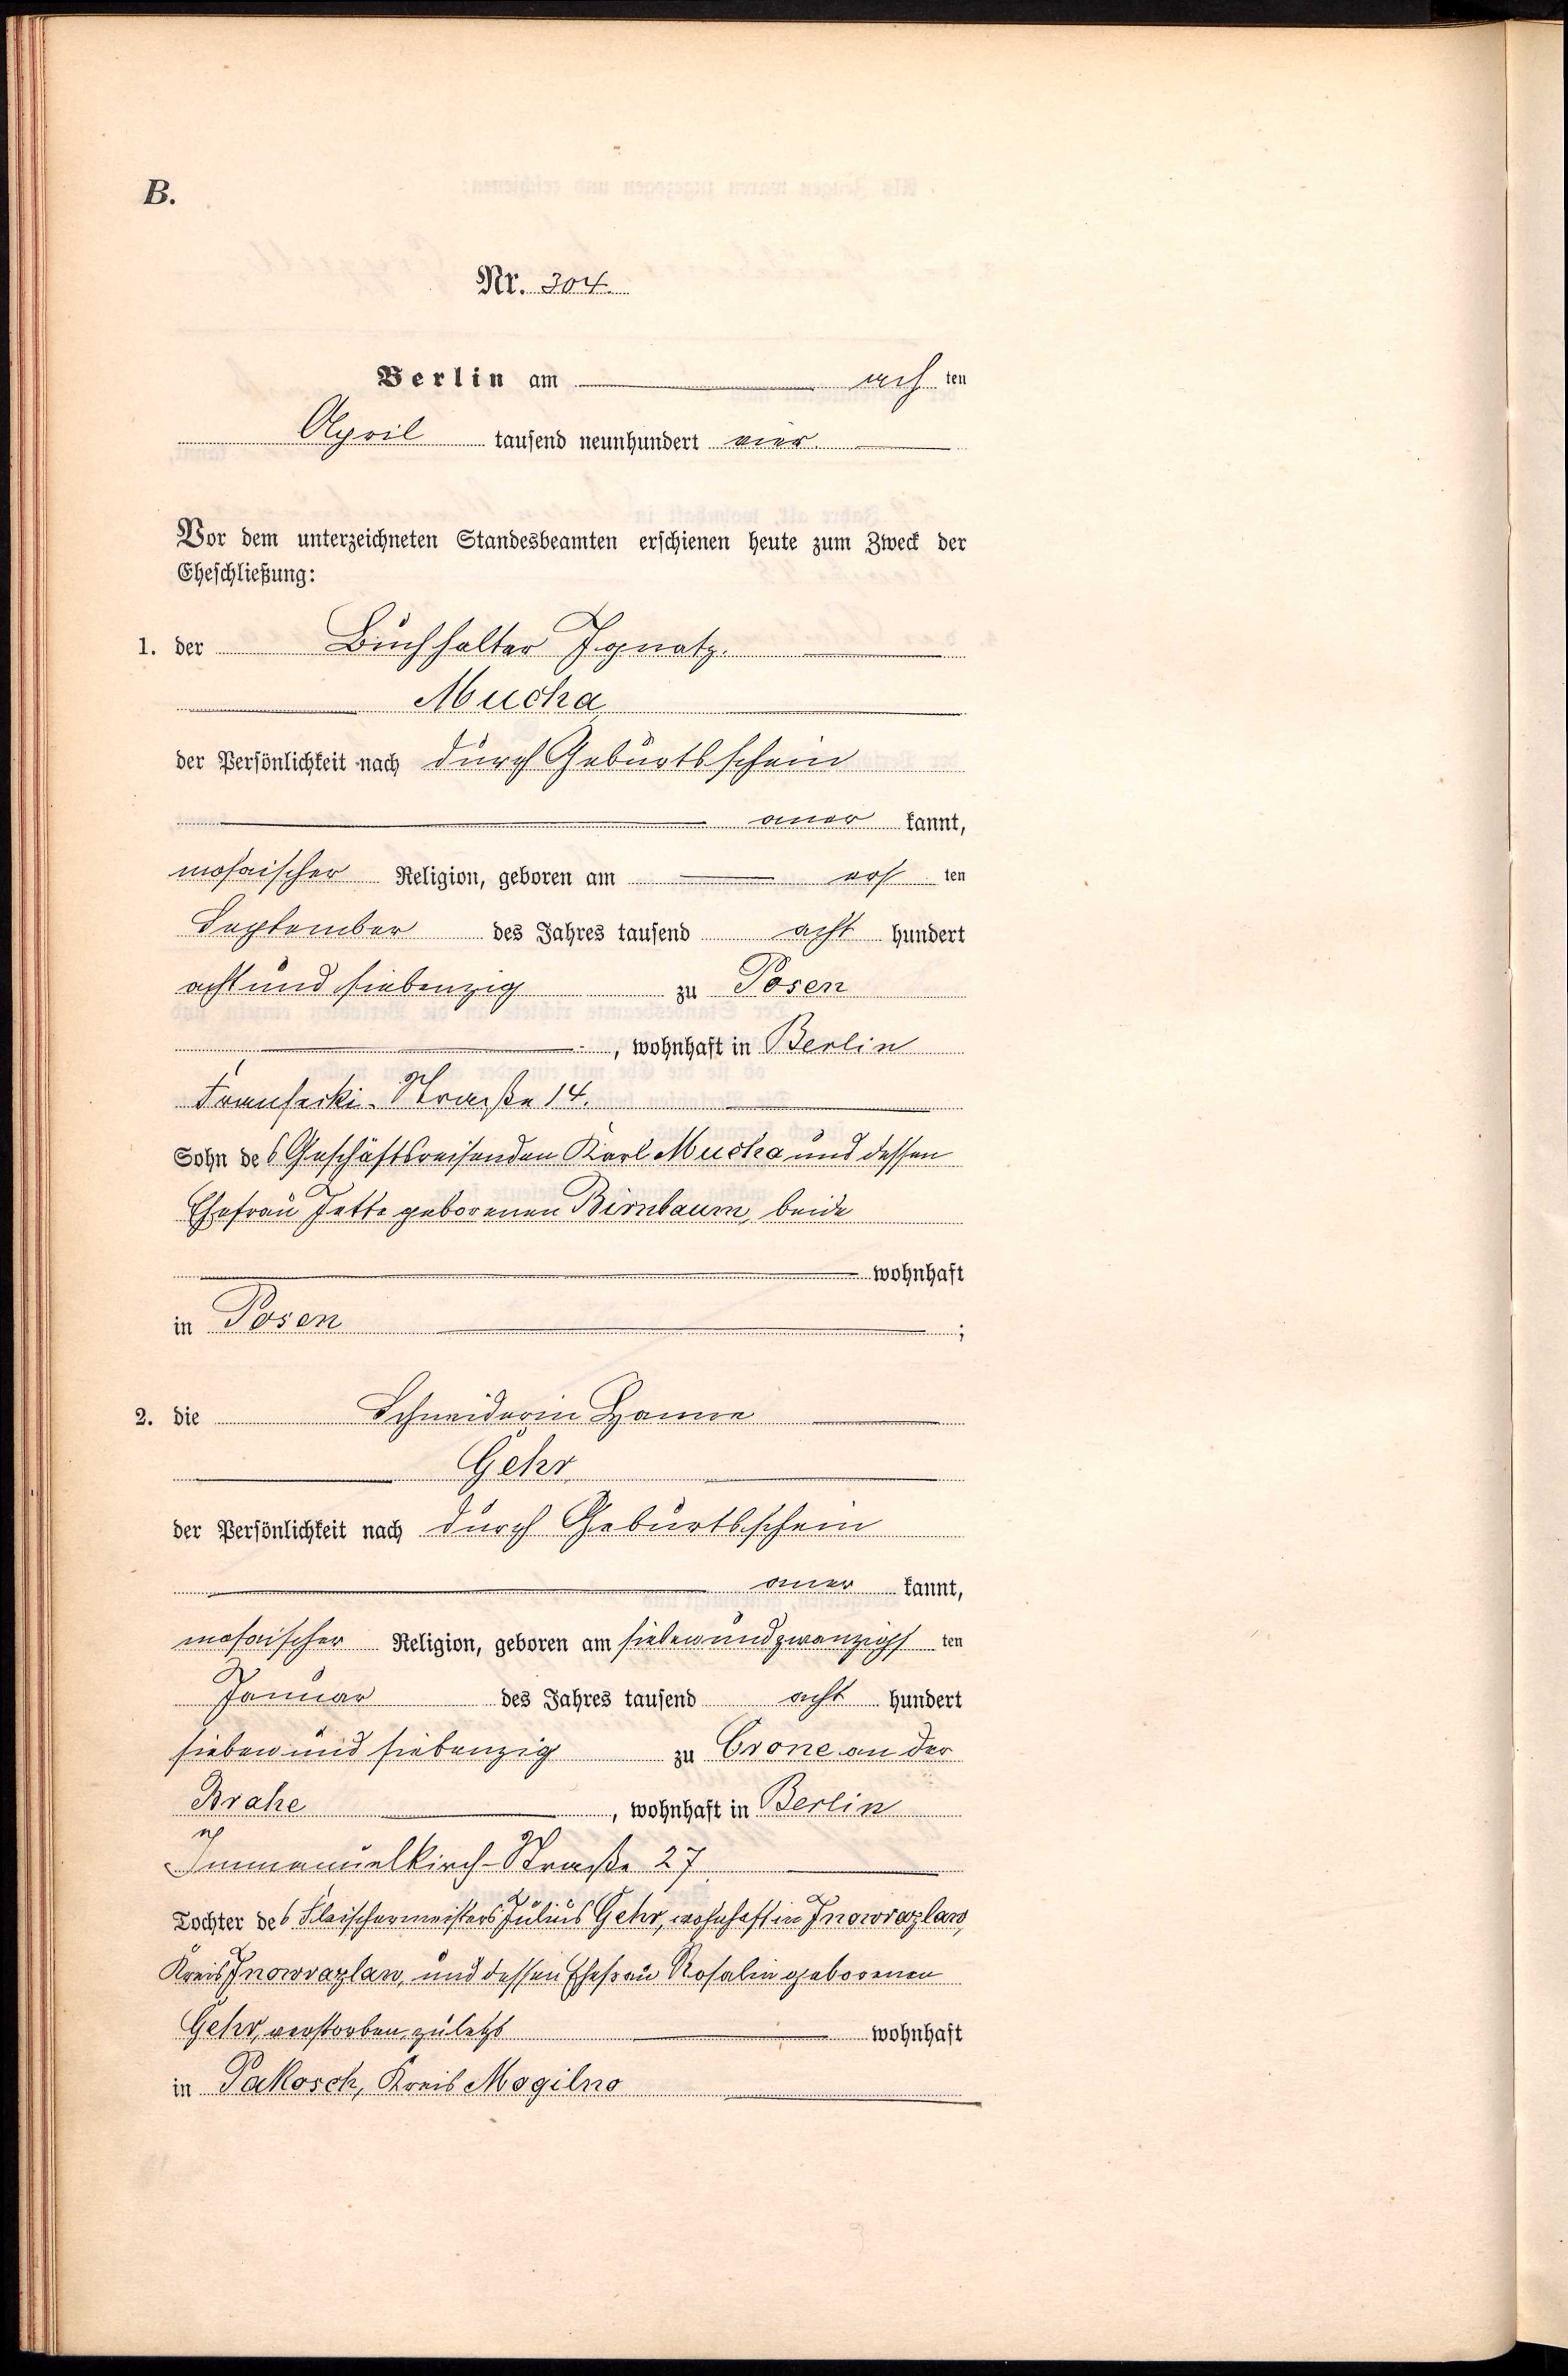 B.
Nr. 304.
Berlin am ach ten
April tausend neunhundert vier.
Vor dem unterzeichneten Standesbeamten erschienen heute zum Zweck der
Eheschließung:
1. der Buchhalter Ignatz
Mucha
der Persönlichkeit nach durch Geburtsschein
aner kannt,
mosaischer Religion, geboren am ers ten
September des Jahres tausend acht hundert
acht und siebenzig zu Posen
, wohnhaft in Berlin
Fransecki-Straße 14.
Sohn des Geschäftsreisenden Karl Mucha und dessen
Ehefrau Jette geborenen Birnbaum, beide
wohnhaft
in Posen ;
2. die Schneiderin Hanne
Gehr
der Persönlichkeit nach durch Geburtsschein
aner kannt,
mosaischer Religion, geboren am siebenundzwanzigs ten
Januar des Jahres tausend acht hundert
sieben und siebenzig zu Crone an der
Brahe , wohnhaft in Berlin
Immanuelkirch-Straße 27
Tochter des Fleischermeisters Julius Gehr, wohnhaft in Inowrazlaw,
Kreis Inowrazlaw, und dessen Ehefrau Rosalie geborenen
Gehr, verstorben, zuletzt wohnhaft
in Pakosch, Kreis Mogilno